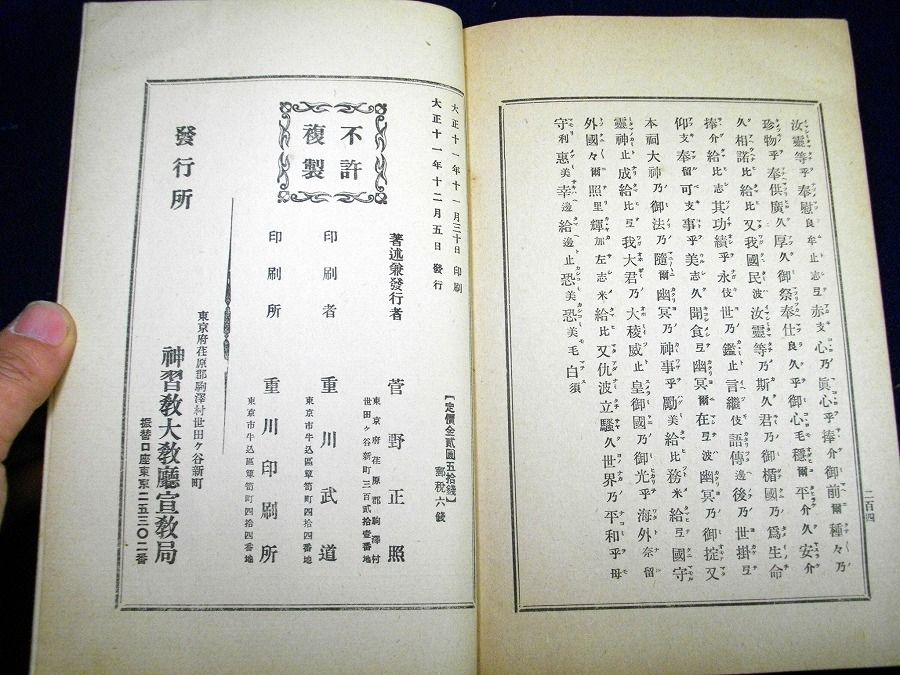 汝靈等乎奉慰良牟止志弖赤支心乃眞心乎捧介御前爾種々乃
珍物乎奉供廣久厚久御祭奉仕良久乎御心毛穩爾平介久安介
久相諾比給比又我國民波汝靈等乃斯久君乃御楯國乃爲生命
捧介給比志其功績乎永伎世乃鑑止言繼伎語傳邊後乃世掛弖
仰支奉留可支事乎美志久聞食弖幽冥爾在波幽冥乃御掟又
本祠大神乃御法乃隨爾幽冥乃神事乎勵美給比務米給弖國守
靈神止成給比弖我大君乃大稜威止皇御國乃御光乎海外奈留
外國々爾照里輝加左志米給比又仇波立騷久世界乃平和乎母
守利惠美幸邊給邊止恐美恐美毛白須
二百四
大正十一年十一月三十日印刷
大正十一年十二月五日發行
不許
複製
【定價金貳圓五拾錢】
郵税六錢
著述兼發行者 菅野正照
東京府荏原郡駒澤村
世田ヶ谷新町三百貳拾壱番地
印刷者 重川武道
東京市牛込區簞笥町四拾四番地
印刷所 重川印刷所
東京市牛込區簞笥町四拾四番地
發行所
東京府荏原郡駒澤村世田ヶ谷新町
神習教大教廳宣教局
振替口座東京二五三〇二番